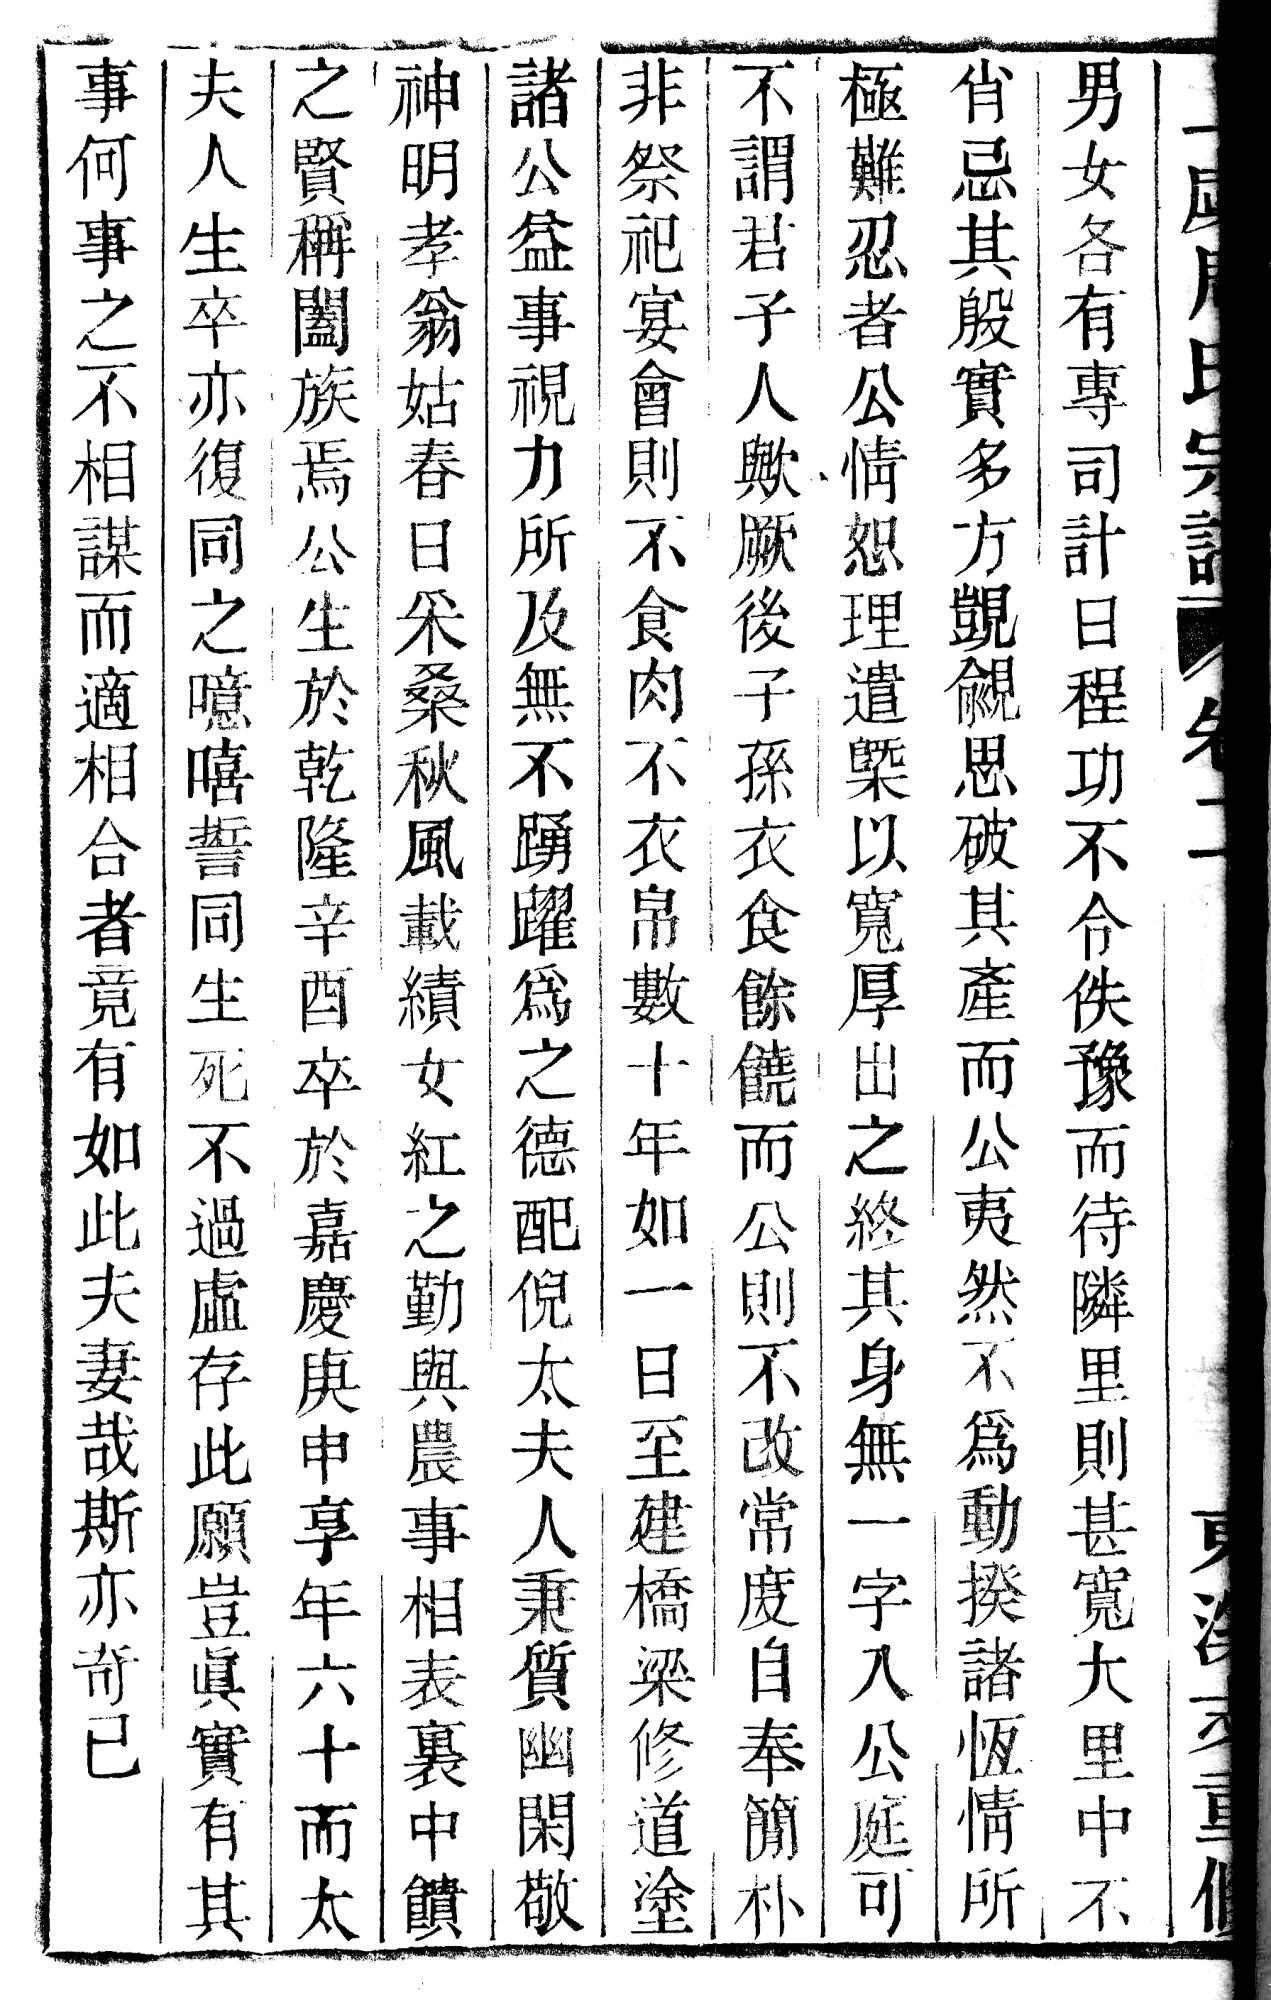 男女各有專司計日程功不令佚豫而待隣里則甚寬大里中不
肖忌其殷實多方覬覦思破其產而公夷然不爲動揆諸恆情所
極難忍者公情恕理遣槩以寬厚出之終其身無一字入公庭可
不謂君子人歟厥後子孫衣食餘饒而公則不改常度自奉簡朴
非祭祀宴會則不食肉不衣帛數十年如一日至建橋梁修道塗
諸公益事視力所及無不踴躍爲之德配倪太夫人秉質幽閑敬
神明孝翁姑春日采桑秋風載績女紅之勤與農事相表裏中饋
之賢稱闔族焉公生於乾隆辛酉卒於嘉慶庚申享年六十而太
夫人生卒亦復同之噫嘻誓同生死不過虛存此願豈眞實有其
事何事之不相謀而適相合者竟有如此夫妻哉斯亦奇已